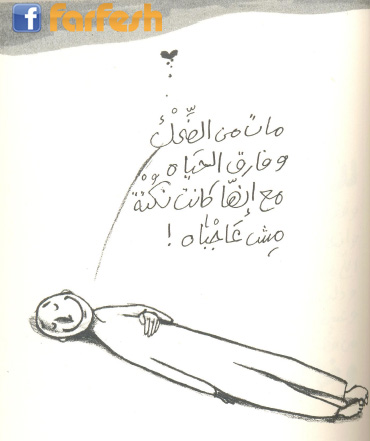 farfesh
مات من الضِّحْك
وفارق الحَيَاه
مع إنّها كَانتْ نُكْتَة
مِش عَاجْبَاه !